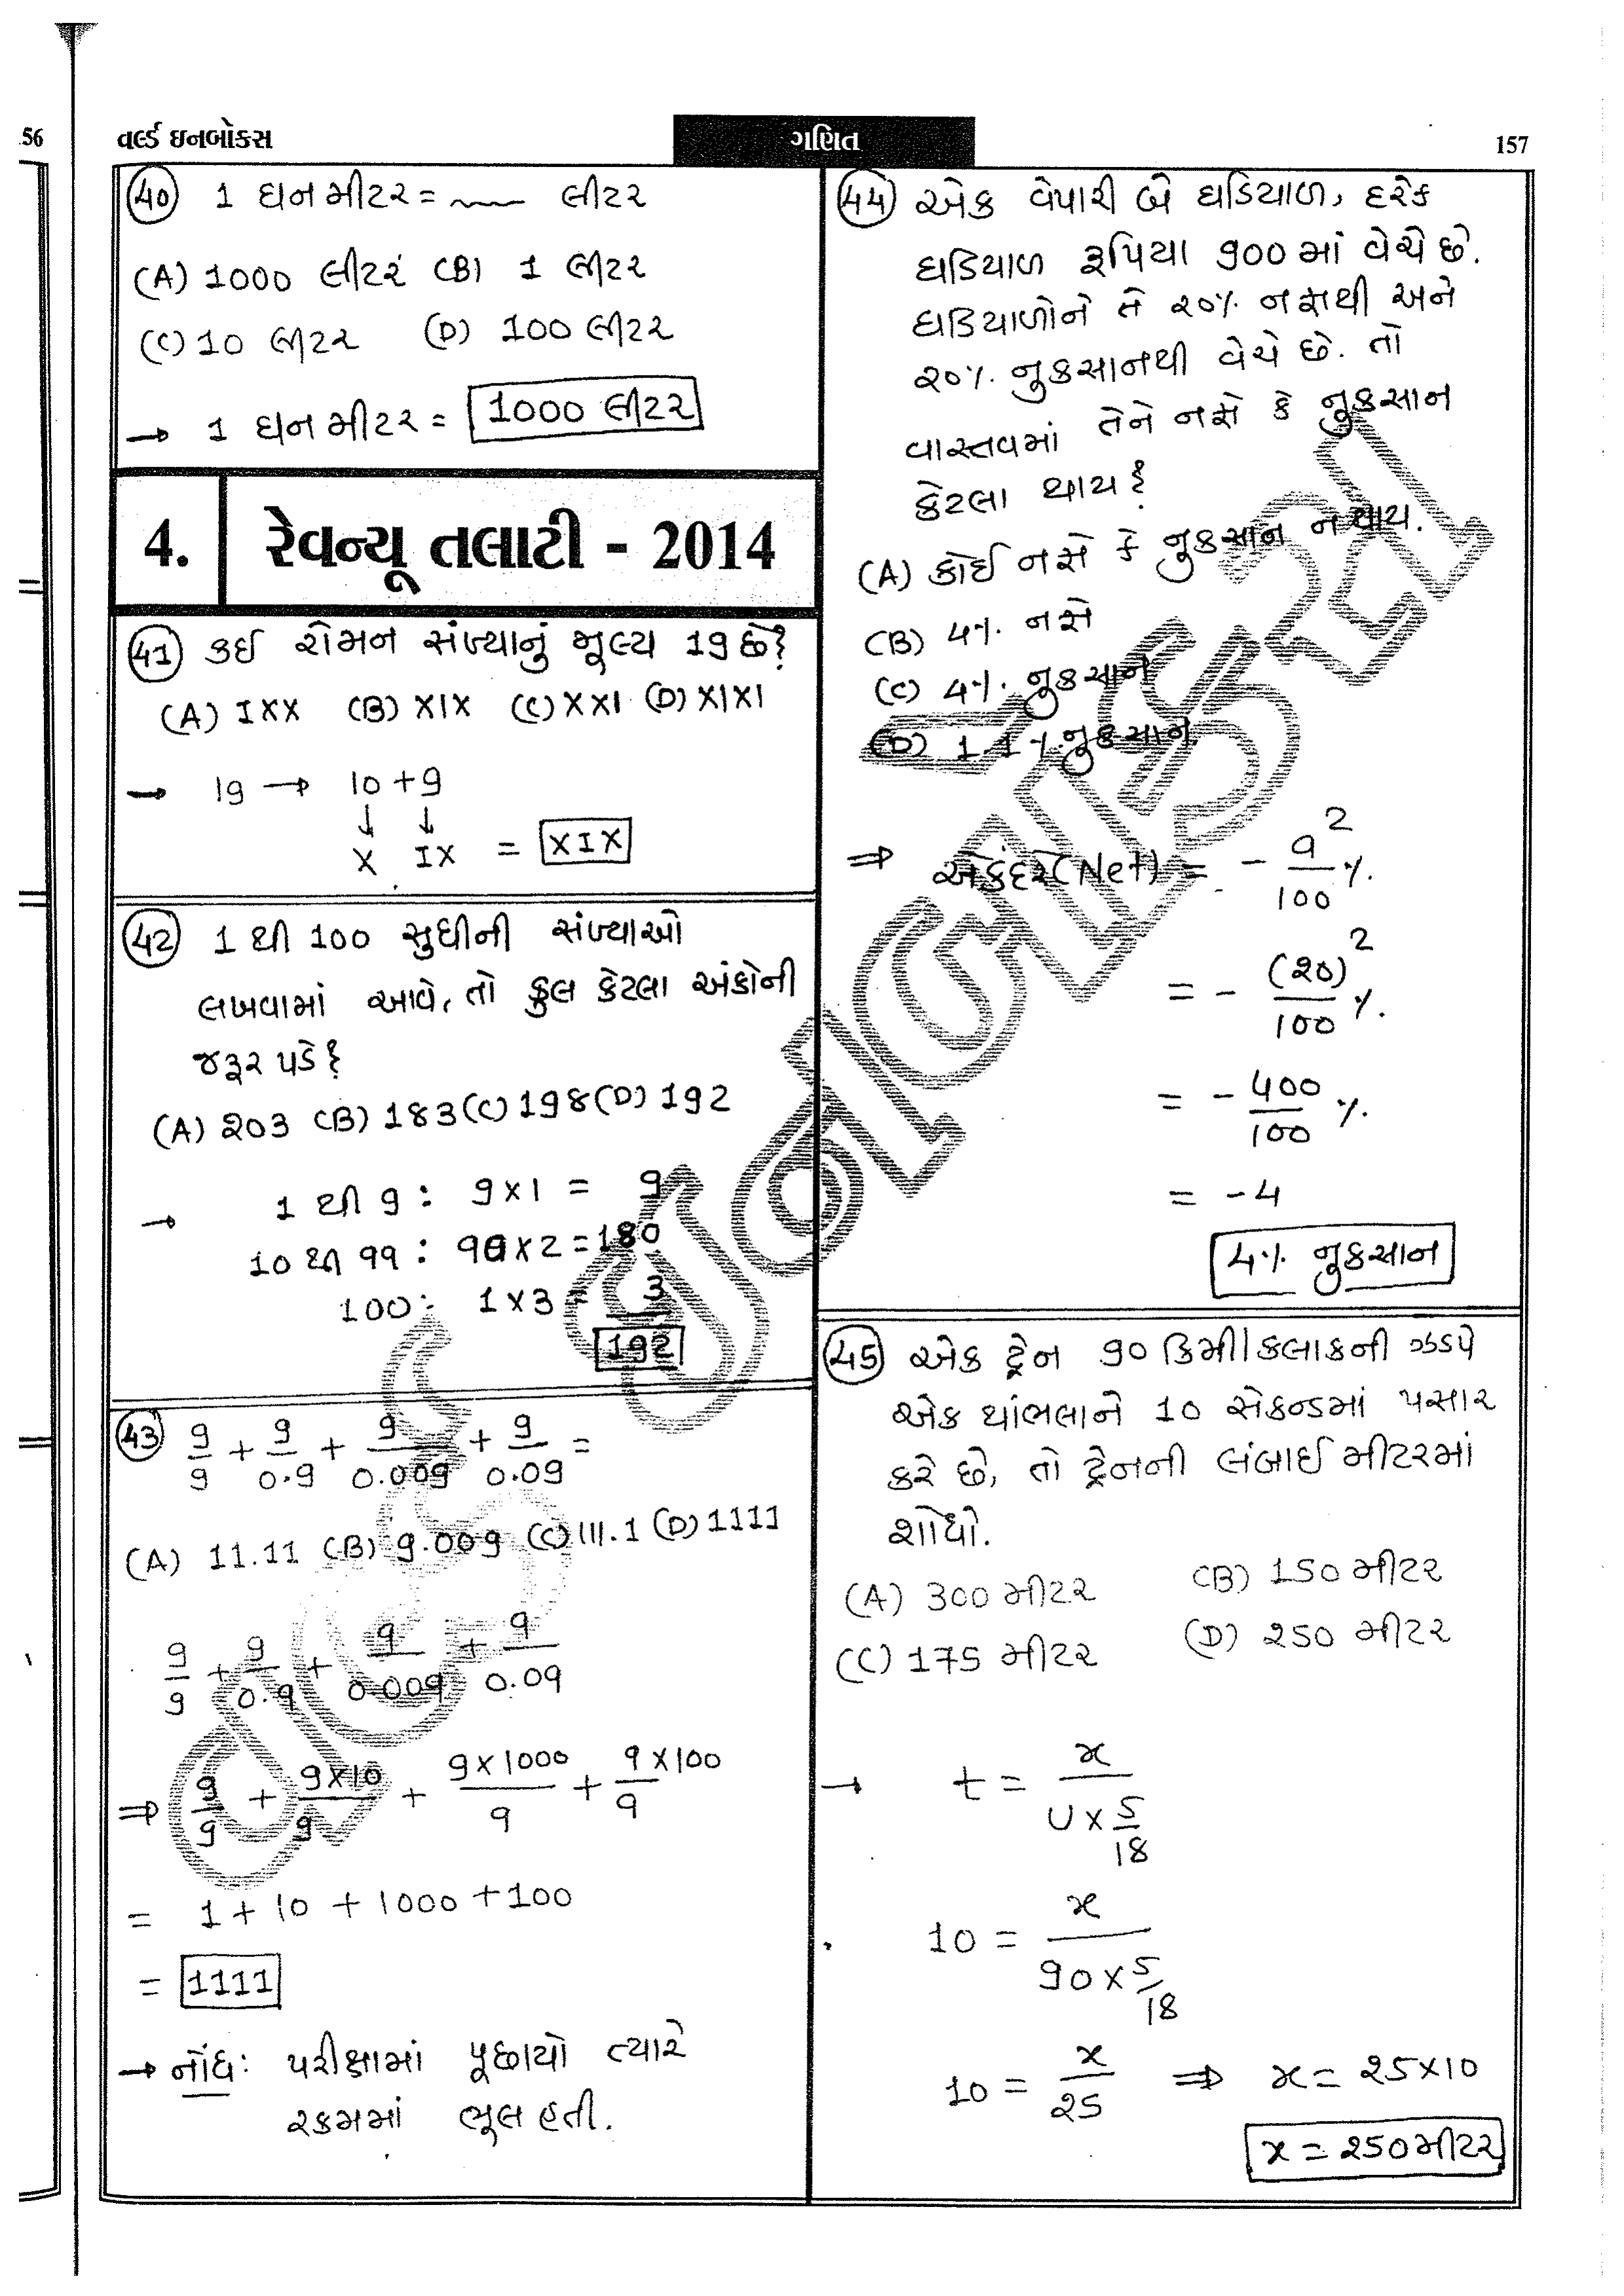 56
વર્લ્ડ ઇનબોક્સ
ગણિત
157
40 1 ઘનમીટર = ﹏ લીટર
(A) 1000 લીટર (B) 1 લીટર
(C) 10 લીટર (D) 100 લીટર
→ 1 ઘનમીટર = 1000 લીટર
4. રેવન્યૂ તલાટી - 2014
41 કઈ રોમન સંખ્યાનું મૂલ્ય 19 છે?
(A) IXX (B) XIX (C) XXI (D) XIXI
→ 19 → 10 + 9
↓ ↓
X IX = XIX
42 1 થી 100 સુધીની સંખ્યાઓ
લખવામાં આવે, તો કુલ કેટલા અંકોની
જરૂર પડે?
(A) ૨03 (B) 183 (C) 198 (D) 192
→ 1 થી 9 : 9 × 1 = 9
10 થી 99 : 90 × 2 = 180
100 : 1 × 3 = 3
192
43 9/9 + 9/0.9 + 9/0.009 + 9/0.09 =
(A) 11.11 (B) 9.009 (C) 111.1 (D) 1111
9/9 + 9/0.9 + 9/0.009 + 9/0.09
⇒ 9/9 + 9×10/9 + 9×1000/9 + 9×100/9
= 1 + 10 + 1000 + 100
= 1111
→ નોંધ: પરીક્ષામાં પૂછાયો ત્યારે
રકમમાં ભૂલ હતી.
44 એક વેપારી બે ઘડિયાળ, દરેક
ઘડિયાળ રૂપિયા 900 માં વેચે છે.
ઘડિયાળોને તે ૨0% નફાથી અને
૨0% નુકસાનથી વેચે છે. તો
વાસ્તવમાં તેને નફો કે નુકસાન
કેટલા થાય?
(A) કોઈ નફો કે નુકસાન ન થાય.
(B) 4% નફો
(C) 4% નુકસાન
(D) 1.1% નુકસાન
⇒ એકંદરે (Net) = - a²/100 %
= - (૨0)²/100 %
= - 400/100 %
= -4
4% નુકસાન
45 એક ટ્રેન 90 કિમી/કલાકની ઝડપે
એક થાંભલાને 10 સેકન્ડમાં પસાર
કરે છે, તો ટ્રેનની લંબાઈ મીટરમાં
શોધો.
(A) 300 મીટર (B) 150 મીટર
(C) 175 મીટર (D) ૨50 મીટર
→ t = x / U × 5/18
10 = x / 90 × 5/18
10 = x/૨5 ⇒ x = ૨5×10
x = ૨50 મીટર